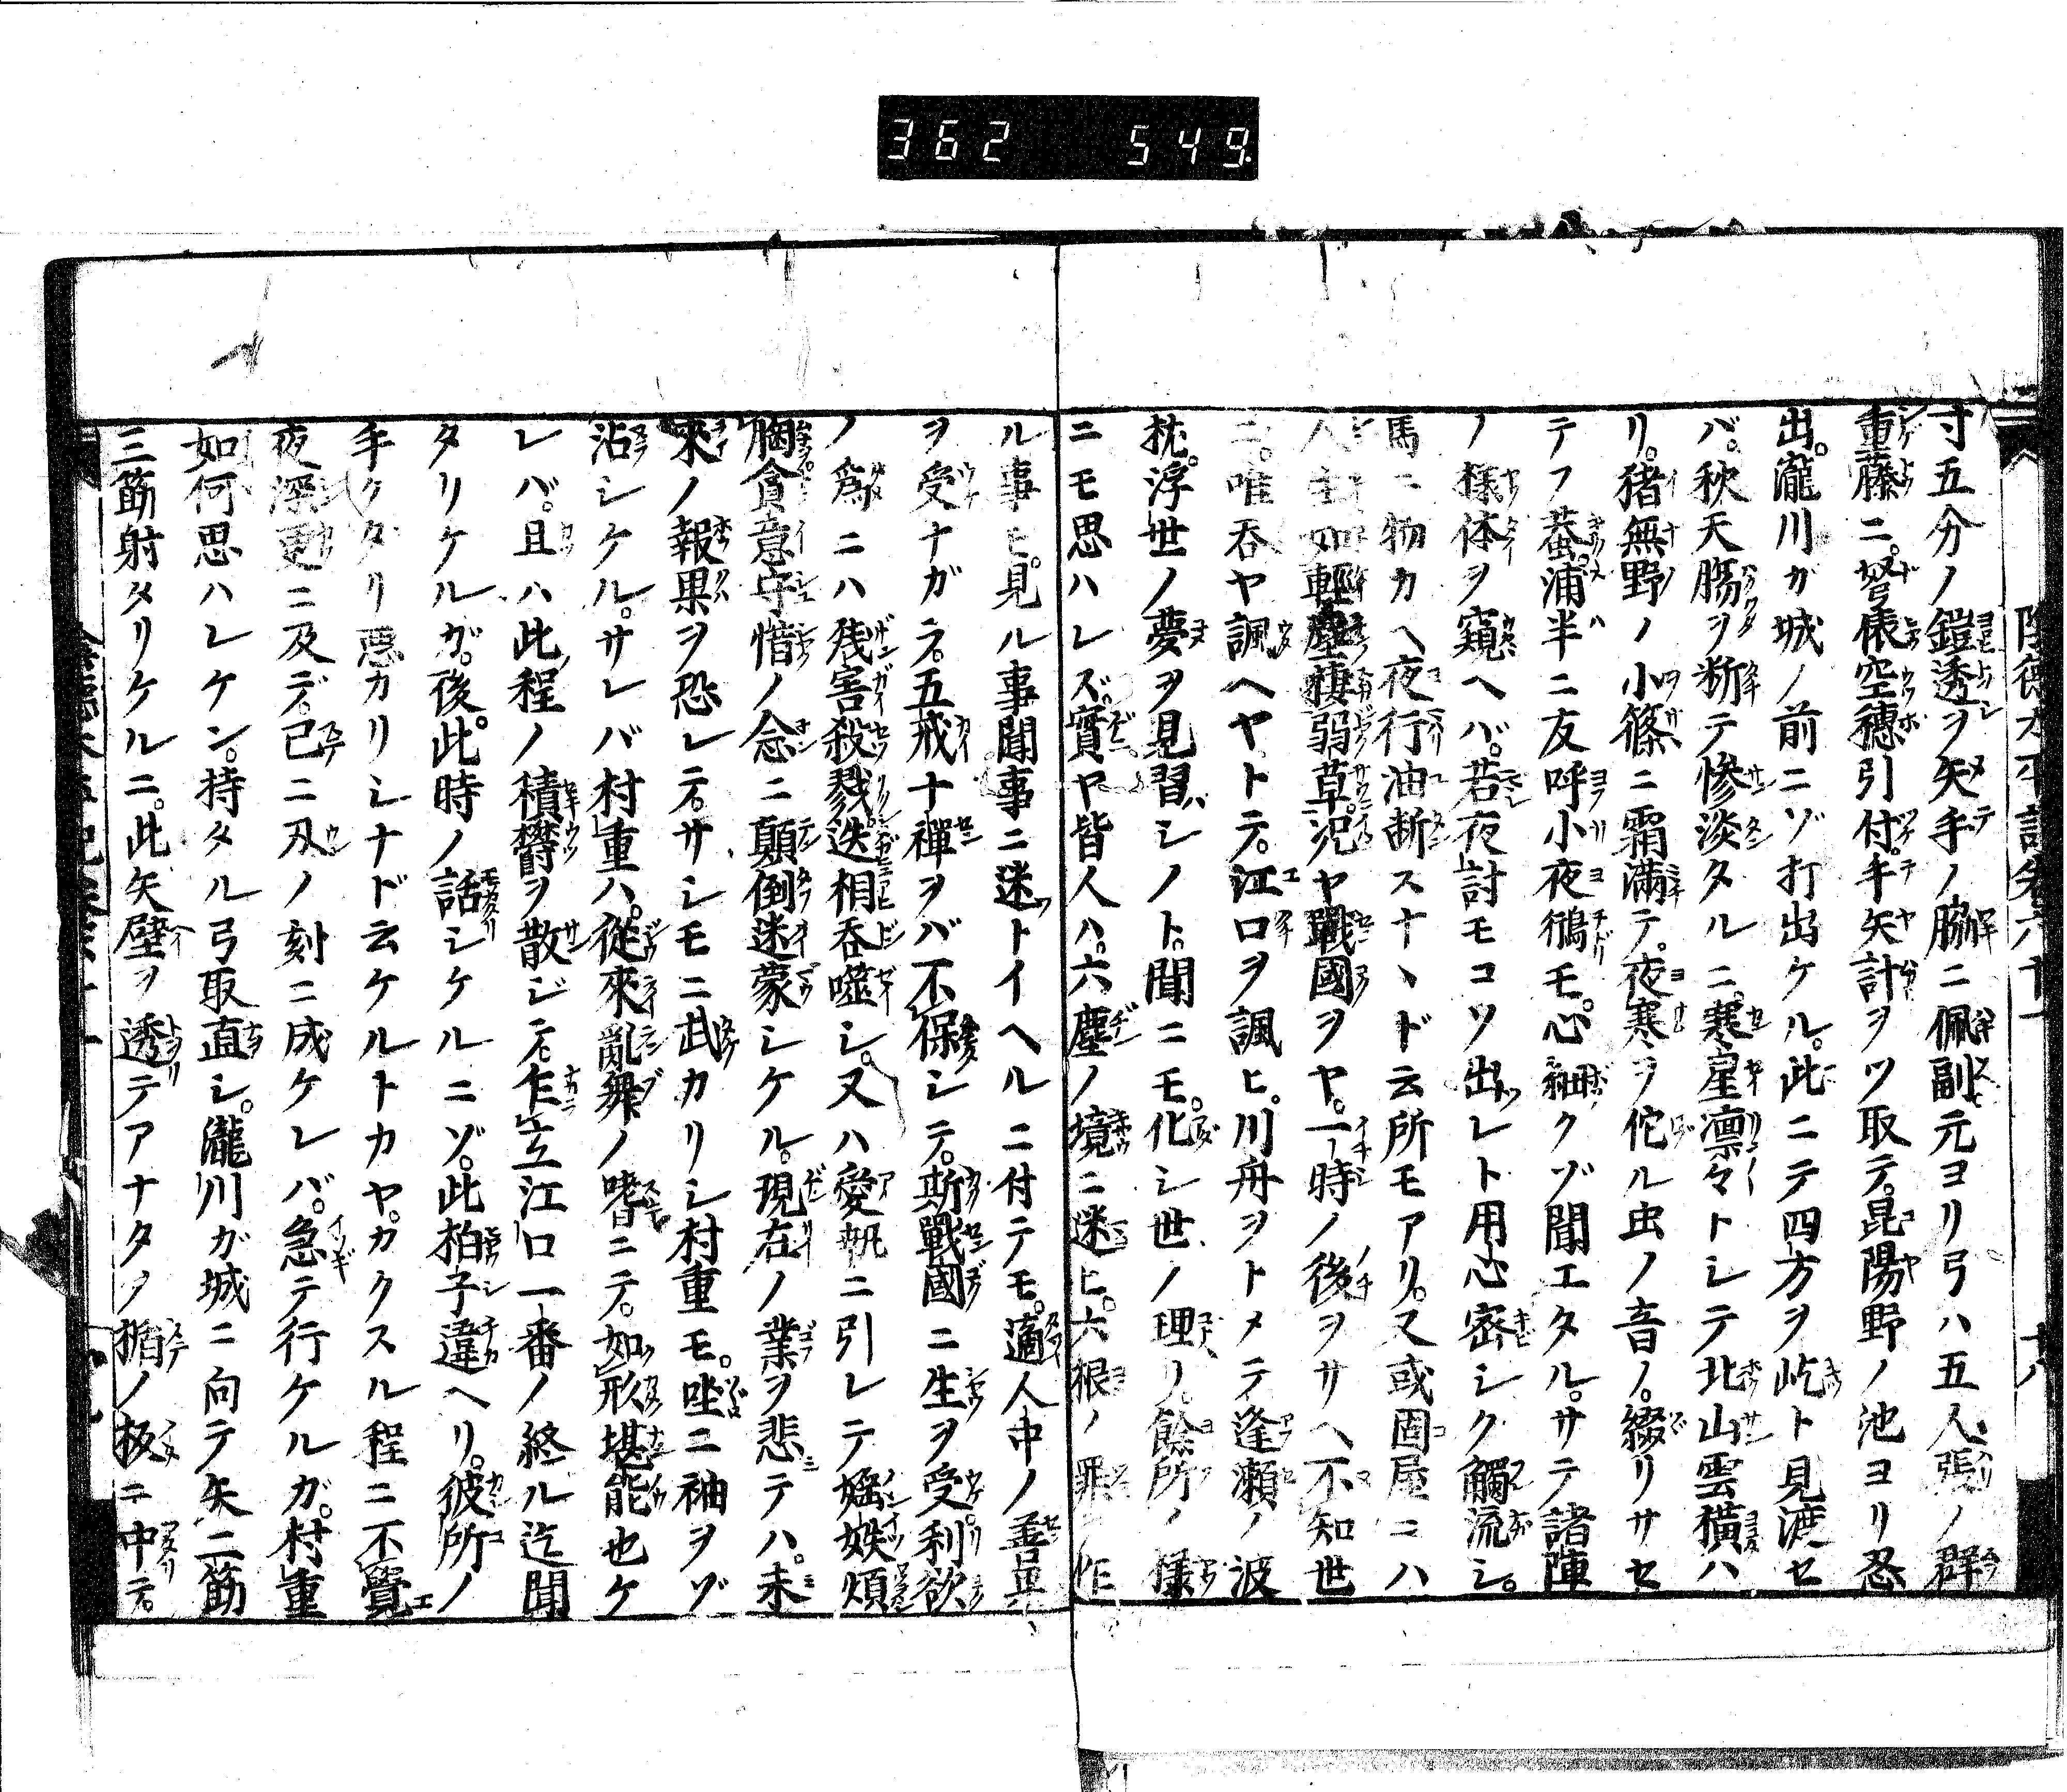 362 549.
寸五分ノ鎧透ヲ矢手ノ脇ニ佩副元ヨリ弓ハ五人張ノ群
重藤ニ。弩俵空穂引付。手矢計ヲツ取テ。昆陽野ノ池ヨリ忍
出。瀧川ガ城ノ前ニゾ打出ケル。此ニテ四方ヲ屹ト見渡セ
バ。秋天膓ヲ断テ惨淡タルニ。寒星凛々トシテ北山雲横ハ
リ。猪無野ノ小篠ニ霜満テ。夜寒ヲ侘ル虫ノ音ノ。綴リサセ
テフ蛬。浦半ニ友呼小夜鵆モ。心細クゾ聞エタル。サテ諸陣
ノ様体ヲ窺ヘバ。若夜討モコソ出レト用心密シク觸流シ。
馬ニ物カヘ夜行油断スナヽド云所モアリ。又或固屋ニハ
人生如輕塵棲弱草。况ヤ戰國ヲヤ。一時ノ後ヲサヘ不知世
ニ。唯呑ヤ諷ヘヤトテ。江口ヲ諷ヒ。川舟ヲトメテ逢瀬ノ波
枕。浮世ノ夢ヲ見習ハシノト。聞ニモ。化シ世ノ理リ。餘所ノ様
ニモ思ハレズ。實ヤ皆人ハ。六塵ノ境ニ迷ヒ。六根ノ罪ヲ作
ル事モ。見ル事聞事ニ迷トイヘルニ付テモ。適人中ノ善果
ヲ受ナガラ。五戒十禪ヲバ不保シテ。斯戰國ニ生ヲ受利欲
ノ為ニハ残害殺戮。迭相呑噬シ。又ハ愛執ニ引レテ婬嫉煩
胸貪意守惜ノ念ニ顛倒迷蒙シケル。現在ノ業ヲ悲テハ。未
來ノ報果ヲ恐レテ。サシモニ武カリシ村重モ。坐ニ袖ヲゾ
沾シケル。サレバ村重ハ。從來亂舞ノ嗜ニテ。如形堪能也ケ
レバ。且ハ此程ノ積欝ヲ散ジテ。乍立江口一番ノ終ル迄聞
タリケルガ。後此時ノ話シケルニゾ。此柏子違ヘリ。彼所ノ
手クタリ悪カリシナド云ケルトカヤ。カクスル程ニ不覺
夜深更ニ及デ。已ニ丑ノ刻ニ成ケレバ。急テ行ケルガ。村重
如何思ハレケン。持タル弓取直シ。瀧川ガ城ニ向テ矢二筋
三筋射タリケルニ。此矢壁ヲ透テアナタノ楯ノ板ニ中テ。